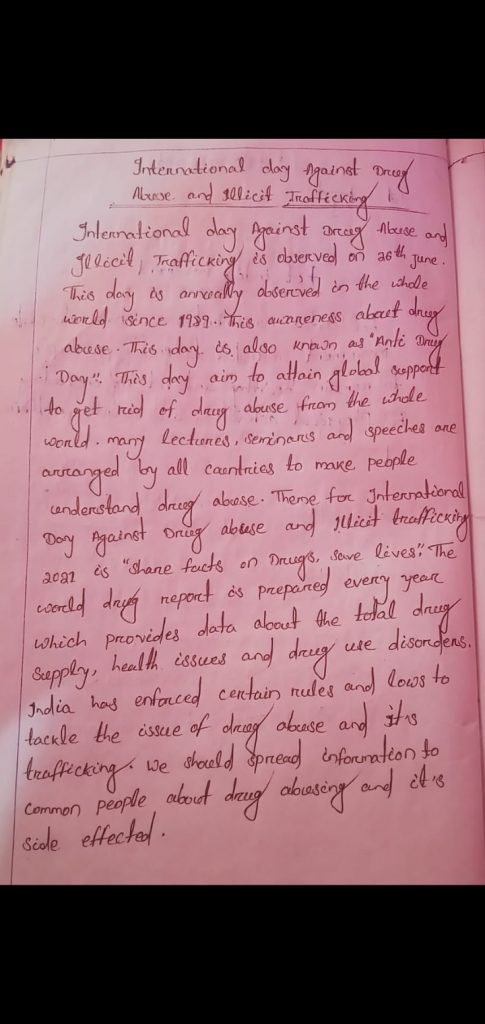 International day Against Drug
Abuse and Illicit Trafficking
International day Against Drug Abuse and
Illicit, Trafficking is observed on 26th june.
This day is annually observed in the whole
world since 1989. This awareness about drug
abuse. This day is also known as "Anti Drug
Day". This day aim to attain global support
to get rid of drug abuse from the whole
world. many lectures, seminars and speeches are
arranged by all countries to make people
understand drug abuse. Theme for International
Day Against Drug abuse and Illicit trafficking
2021 is "share facts on Drugs, save lives". The
world drug report is prepared every year
which provides data about the total drug
supply, health issues and drug use disorders.
India has enforced certain rules and lows to
tackle the issue of drug abuse and it's
trafficking. we should spread information to
common people about drug abusing and it's
side effected.